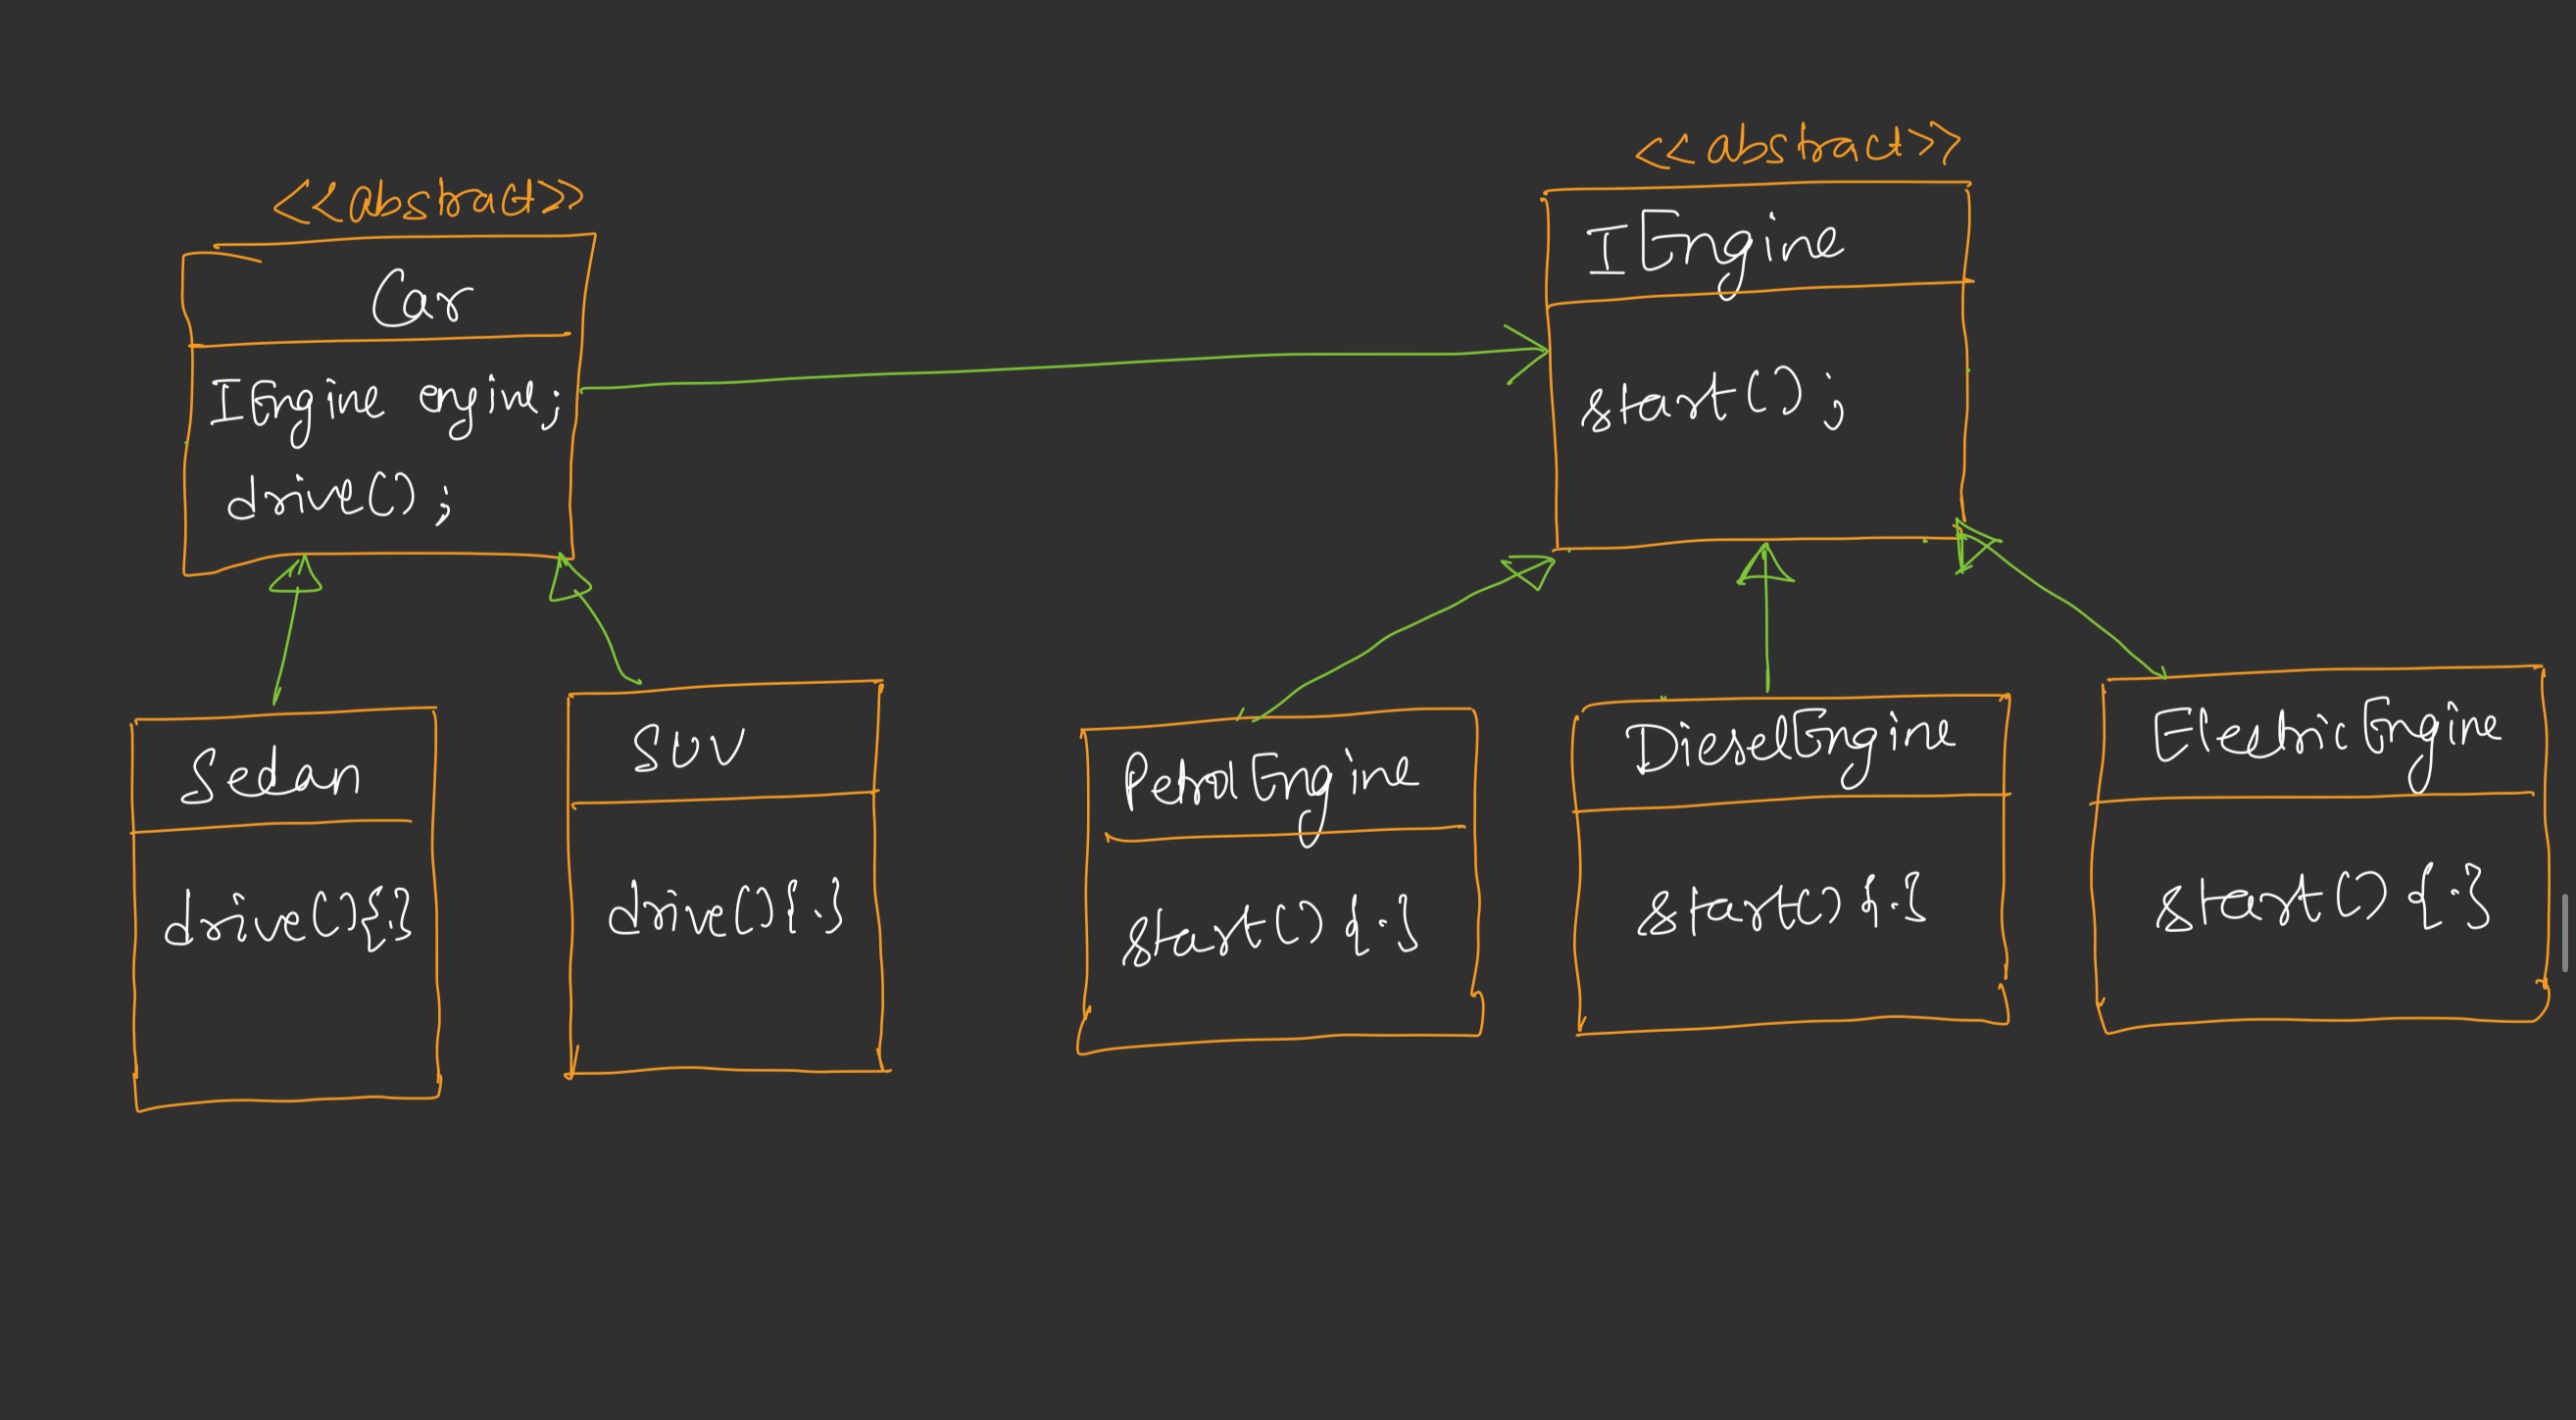 <<abstract>>
Car
IEngine engine;
drive();
<<abstract>>
IEngine
start();
Sedan
drive(){.}
SUV
drive(){.}
PetrolEngine
start(){.}
DieselEngine
start(){.}
ElectricEngine
start(){.}